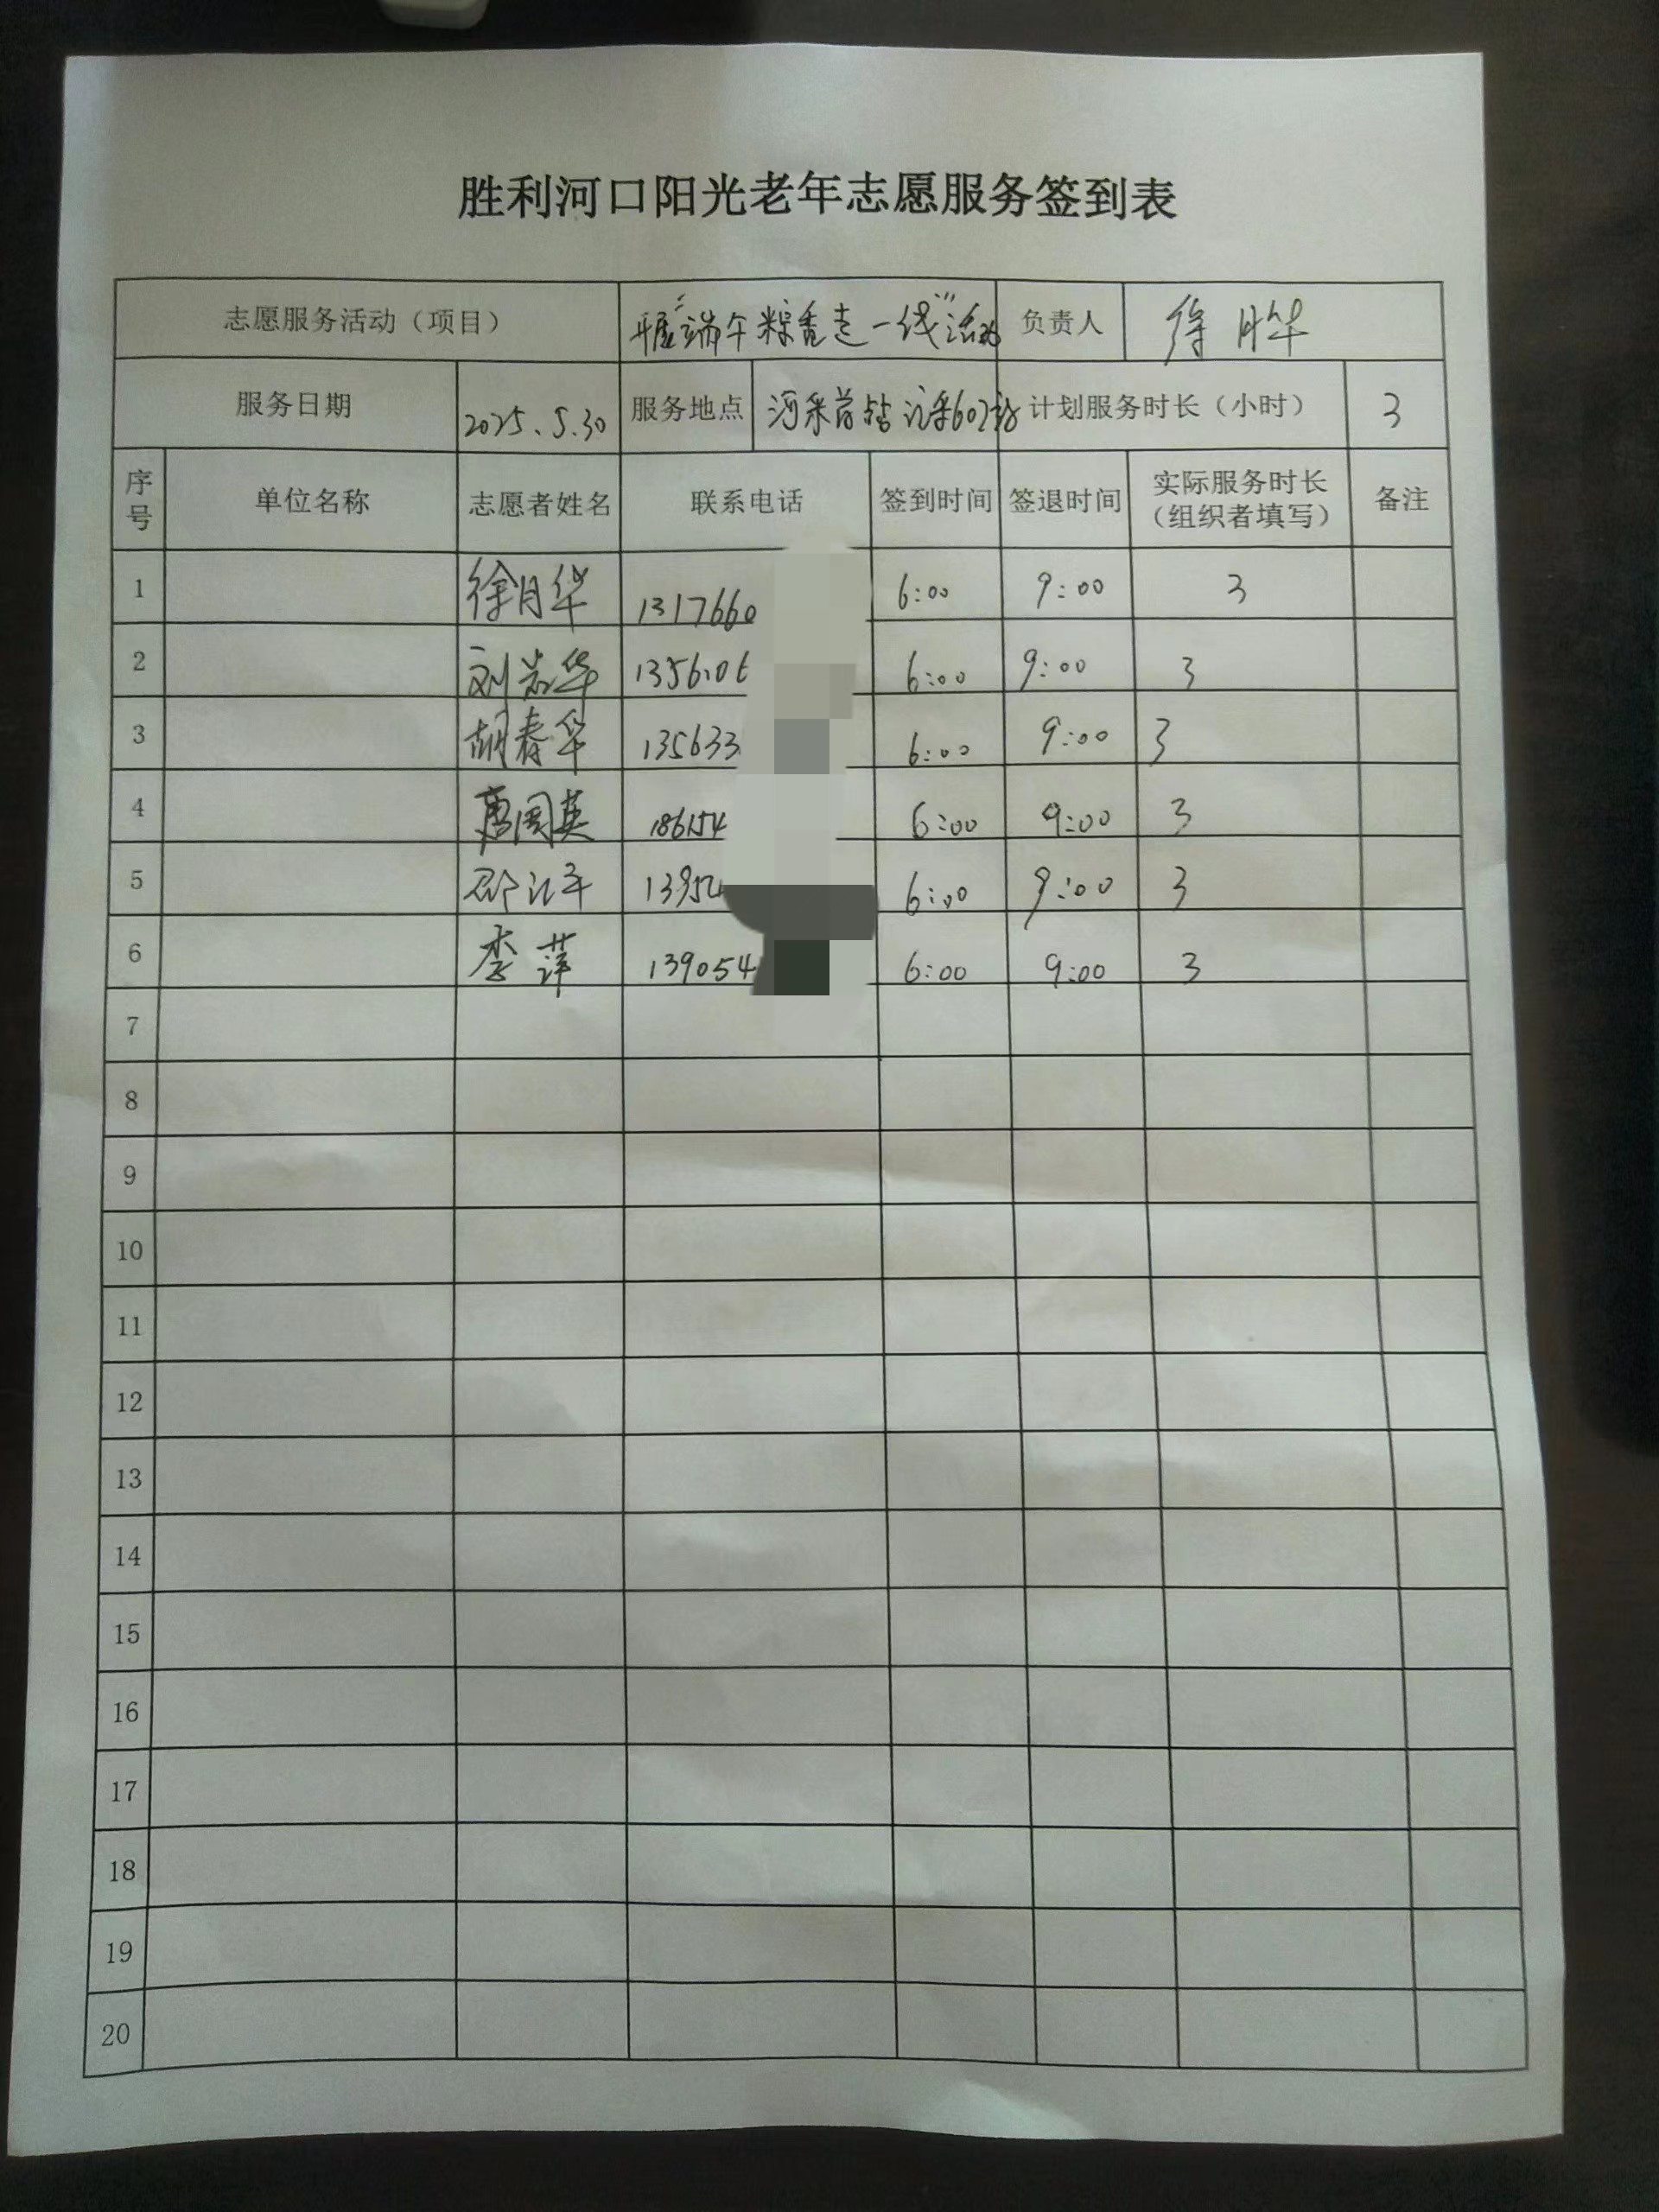 胜利河口阳光老年志愿服务签到表
志愿服务活动（项目） “端午粽香走一线”活动 负责人 徐月华
服务日期 2025.5.30 服务地点 河采首站 计划服务时长（小时） 3
序号 单位名称 志愿者姓名 联系电话 签到时间 签退时间 实际服务时长（组织者填写） 备注
1 徐月华 1317660 6:00 9:00 3
2 刘岩华 135606 6:00 9:00 3
3 胡春华 135633 6:00 9:00 3
4 唐国英 186154 6:00 9:00 3
5 1395 6:00 9:00 3
6 李萍 139054 6:00 9:00 3
7
8
9
10
11
12
13
14
15
16
17
18
19
20